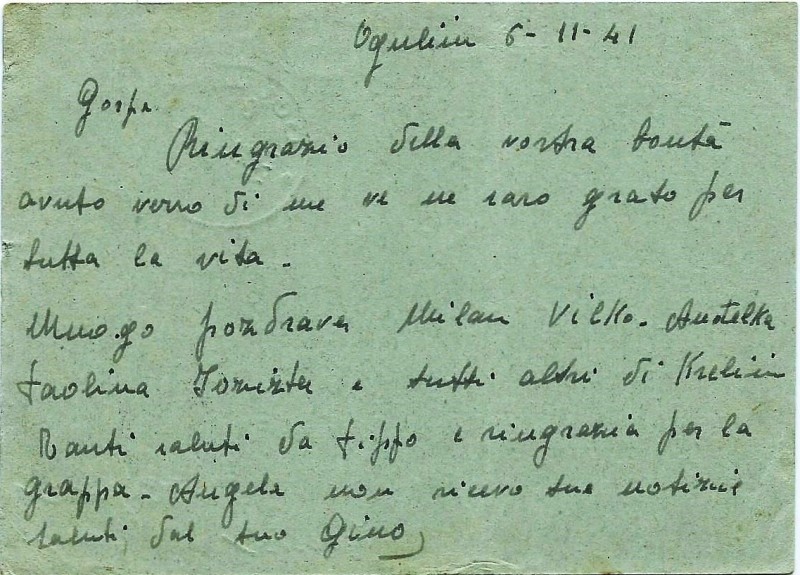 Ogulin 6-11-41
Gospa
Ringrazio della vostra bontà
avuto verso di me ve ne saro grato per
tutta la vita.
Mnogo pozdrava Milan Vilko. Anđelka
Paolina e tutti altri di
Tanti saluti da Pippo e ringrazia per la
grappa. Angela non ricevo tue notizie
saluti dal tuo Gino